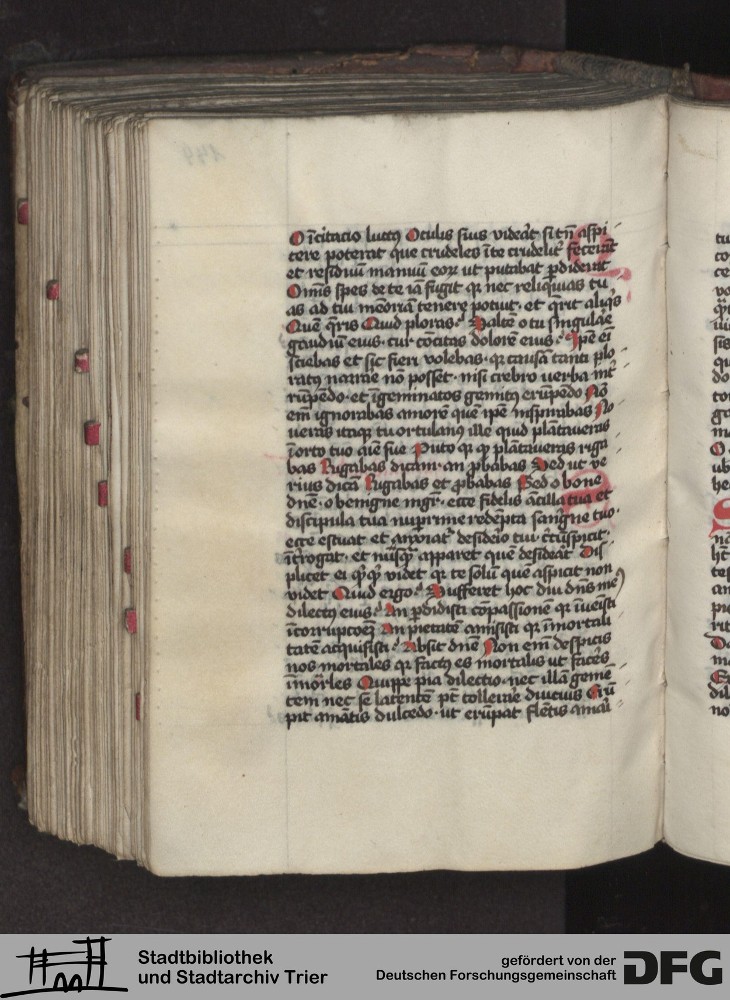 O īcitatio luctꝯ Oculis suis videat̄ si tn̄ aspi
cere poterat que crudeles in te crudelit̉ fecerūt
et residuū manuū eoꝝ ut putabat ꝑdiderit
Omīs spes de te iā fugit qꝛ nec reliquias tu
as ad tui memoriā tenere potuit · et q̄rit aliqͥs
Quē q̄ris Quid ploras · Saltē o tu singulare
gaudiū eius · cur cōcitas dolorē eius · Ipse em̄
sciebas et sic fieri volebas · qꝛ causā tanti plo
ratꝰ narrare nō posset · nisi crebro verba int̉
rūpēdo · et īgeminatos gemitꝰ erūpēdo Nō
em̄ ignorabas amorē quē ipse inspirabas No
veras itaqꝫ tu ortulanꝰ ille quid plātaveras
ī orto tuo aīe sue Puto qꝛ qͩ plātaveras riga
bas Rigabas dicam · an ꝓbabas Sed ut ve
rius dicā Rigabas et ꝓbabas Sed o bone
dn̄e · o benigne mgr̄ · ecce fidelis ācilla tua et
discipula tua nuꝑrime redēpta sangīne tuo ·
ecce estuat et anxiat̉ desiderio tui · c̄cūspicit ·
īt̉rogat · et nūsqͣ apparet quē desiderat Dis
plicet ei qͥcqͥd videt qꝛ te solū quē aspicit non
videt Quid ergo · Sufferet hoc diu dn̄s meꝰ
dilectꝫ eius · An ꝑdidisti cōpassionē qꝛ īvenisti
īcorrupcoēꝫ An pietatē amisisti qꝛ īmortali
tatē acquisisti · Absit dn̄e Non em̄ despicis
nos mortales qꝛ factꝰ es mortalis ut faceres
īmōrles Quippe pia dilectio · nec illā gemē
tem nec se latentē pt̄ tollerare diucius Erū
pit amātis dulcedo · ut erūpat flētis amari
Stadtbibliothek
und Stadtarchiv Trier
gefördert von der
Deutschen Forschungsgemeinschaft
DFG